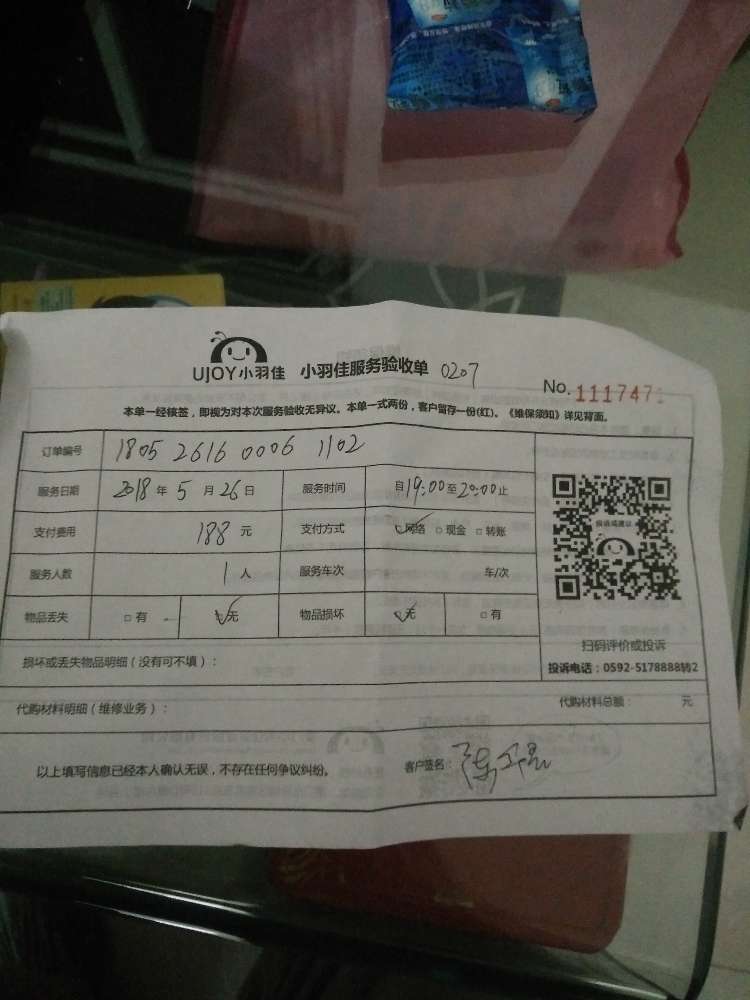 UJOY小羽佳 小羽佳服务验收单 0207
No. 1117471
本单一经核签，即视为对本次服务验收无异议。本单一式两份，客户留存一份(红)。《维保须知》详见背面。
订单编号 1805 2616 0006 1102
服务日期 2018 年 5 月 26 日 服务时间 自 19:00 至 20:00 止
支付费用 188 元 支付方式 ☑网络 □现金 □转账
服务人数 1 人 服务车次 车/次
物品丢失 □有 ☑无 物品损坏 ☑无 □有
投诉或建议
扫码评价或投诉
投诉电话：0592-5178888转2
损坏或丢失物品明细（没有可不填）：
代购材料明细（维修业务）： 代购材料总额： 元
以上填写信息已经本人确认无误，不存在任何争议纠纷。 客户签名：